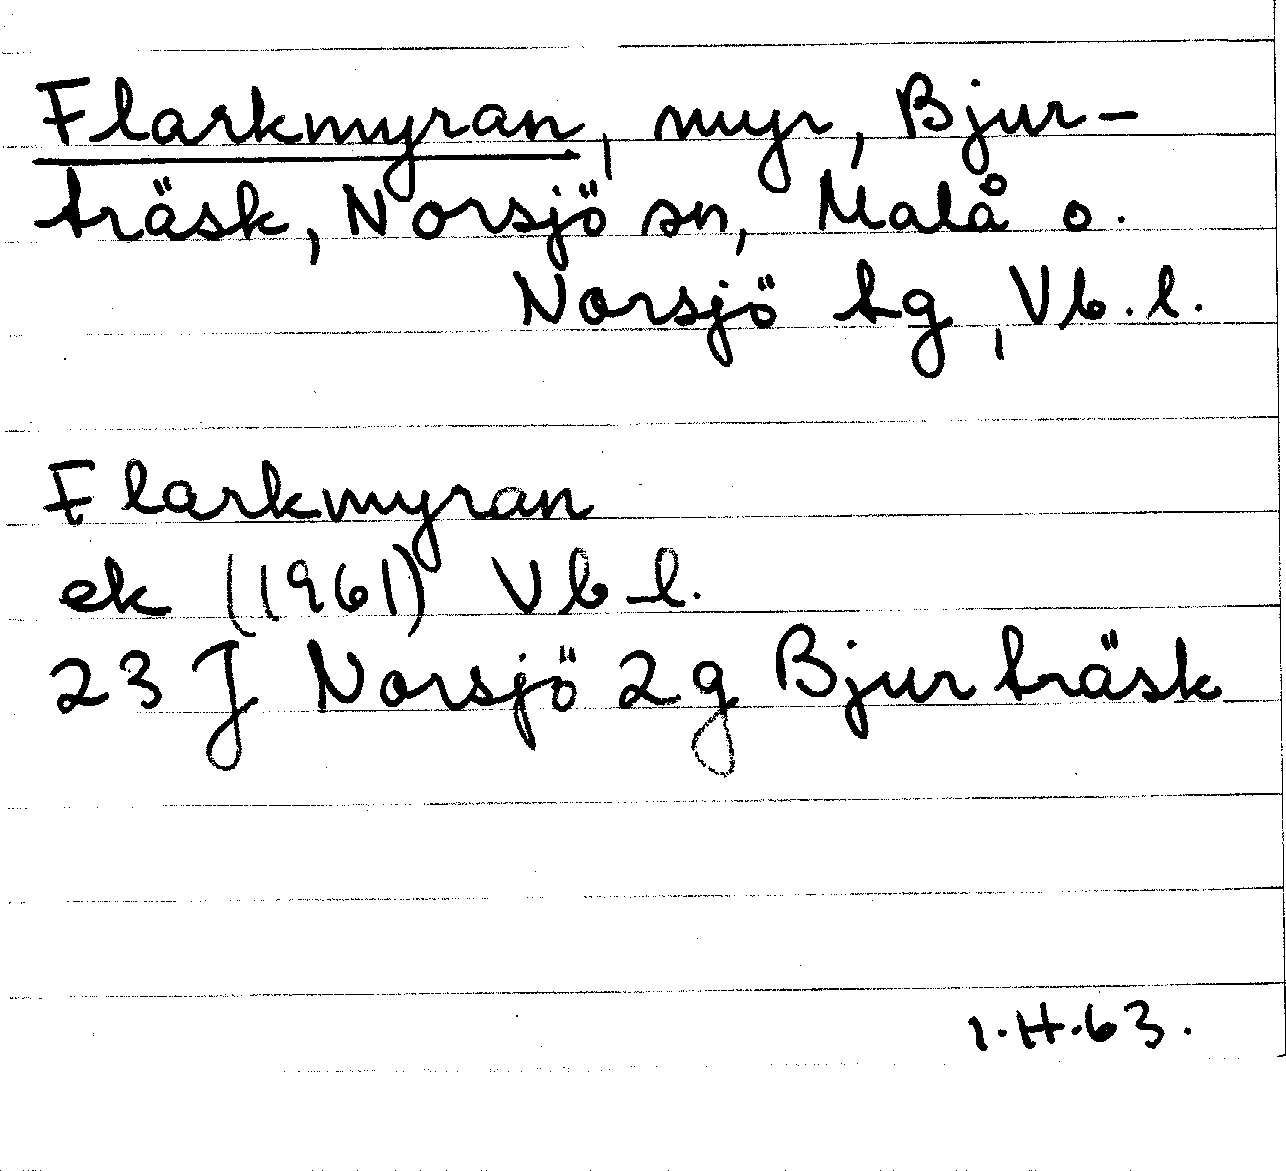 Flarkmyran, myr, Bjur-
träsk, Norsjö sn, Malå o.
Norsjö tg, Vb.l.
Flarkmyran
ek (1961) Vb l.
23 J Norsjö 2g Bjurträsk
I.H.63.